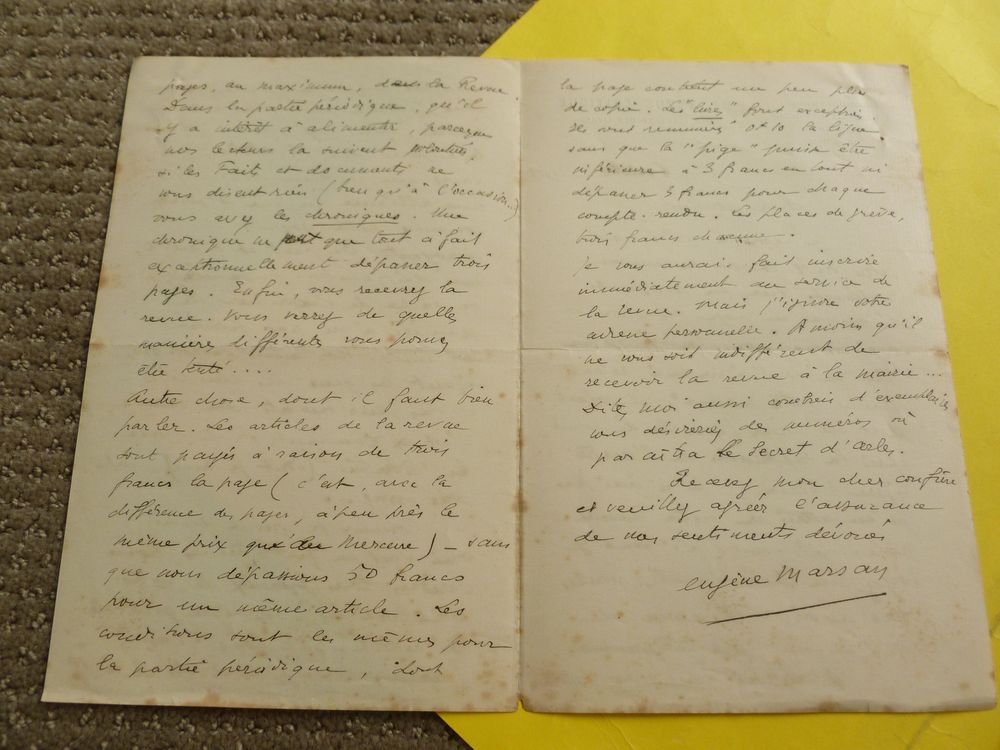 pages, au maximum, dans la Revue.
Dans la partie périodique, qu'il
y a intérêt à alimenter, parceque
nos lecteurs la suivent
si les Faits et documents ne
vous disent rien (bien qu'à l'occasion...)
vous avez les chroniques. Une
chronique ne peut que tout à fait
exceptionnellement dépasser trois
pages. Enfin, vous recevrez la
revue. Vous verrez de quelles
manières différentes vous pouvez
être tenté....
Autre chose, dont il faut bien
parler. Les articles de la revue
sont payés à raison de trois
francs la page (c'est, avec la
différence des pages, à peu près le
même prix qu'au Mercure) - sans
que nous dépassions 50 francs
pour un même article. Les
conditions sont les mêmes pour
la partie périodique, dont
la page contient un peu plus
de copie. Les "livres" font exception.
Ils sont rémunérés 0f10 la ligne
sans que la "pige" puisse être
inférieure à 3 francs en tout ni
dépasser 5 francs pour chaque
compte-rendu. Les places de grève,
trois francs chacune.
Je vous aurais fait inscrire
immédiatement au service de
la revue. Mais j'ignore votre
adresse personnelle. A moins qu'il
ne vous soit indifférent de
recevoir la revue à la mairie...
Dites moi aussi combien d'exemplaires
vous désireriez des numéros où
paraîtra le Secret d'Arles.
Recevez mon cher confrère
et veuillez agréer l'assurance
de mes sentiments dévoués
Eugène Marsan